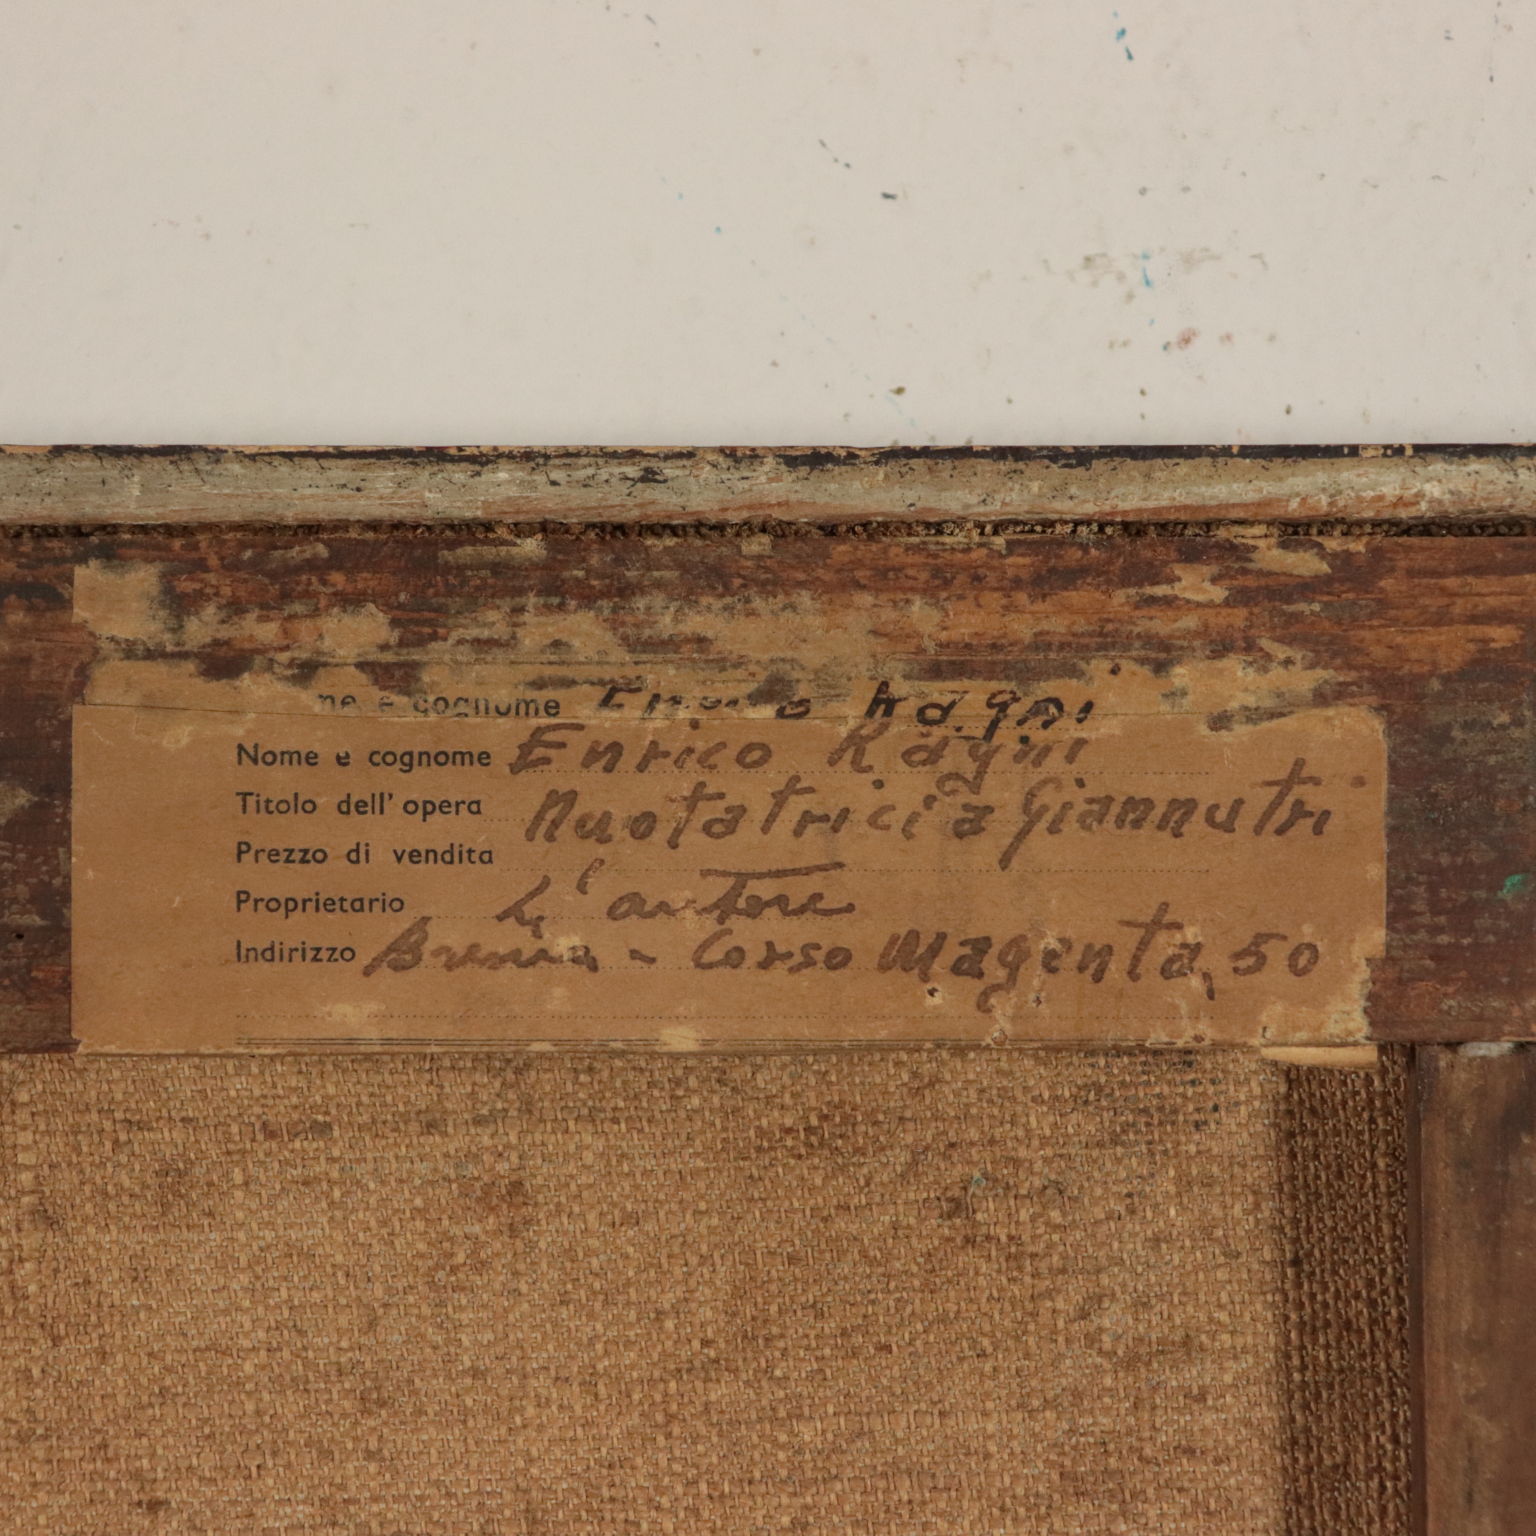 ne e cognome Enrico Ragni
Nome e cognome Enrico Ragni
Titolo dell'opera Nuotatrici a Giannutri
Prezzo di vendita
Proprietario L'autore
Indirizzo Brescia - Corso Magenta, 50